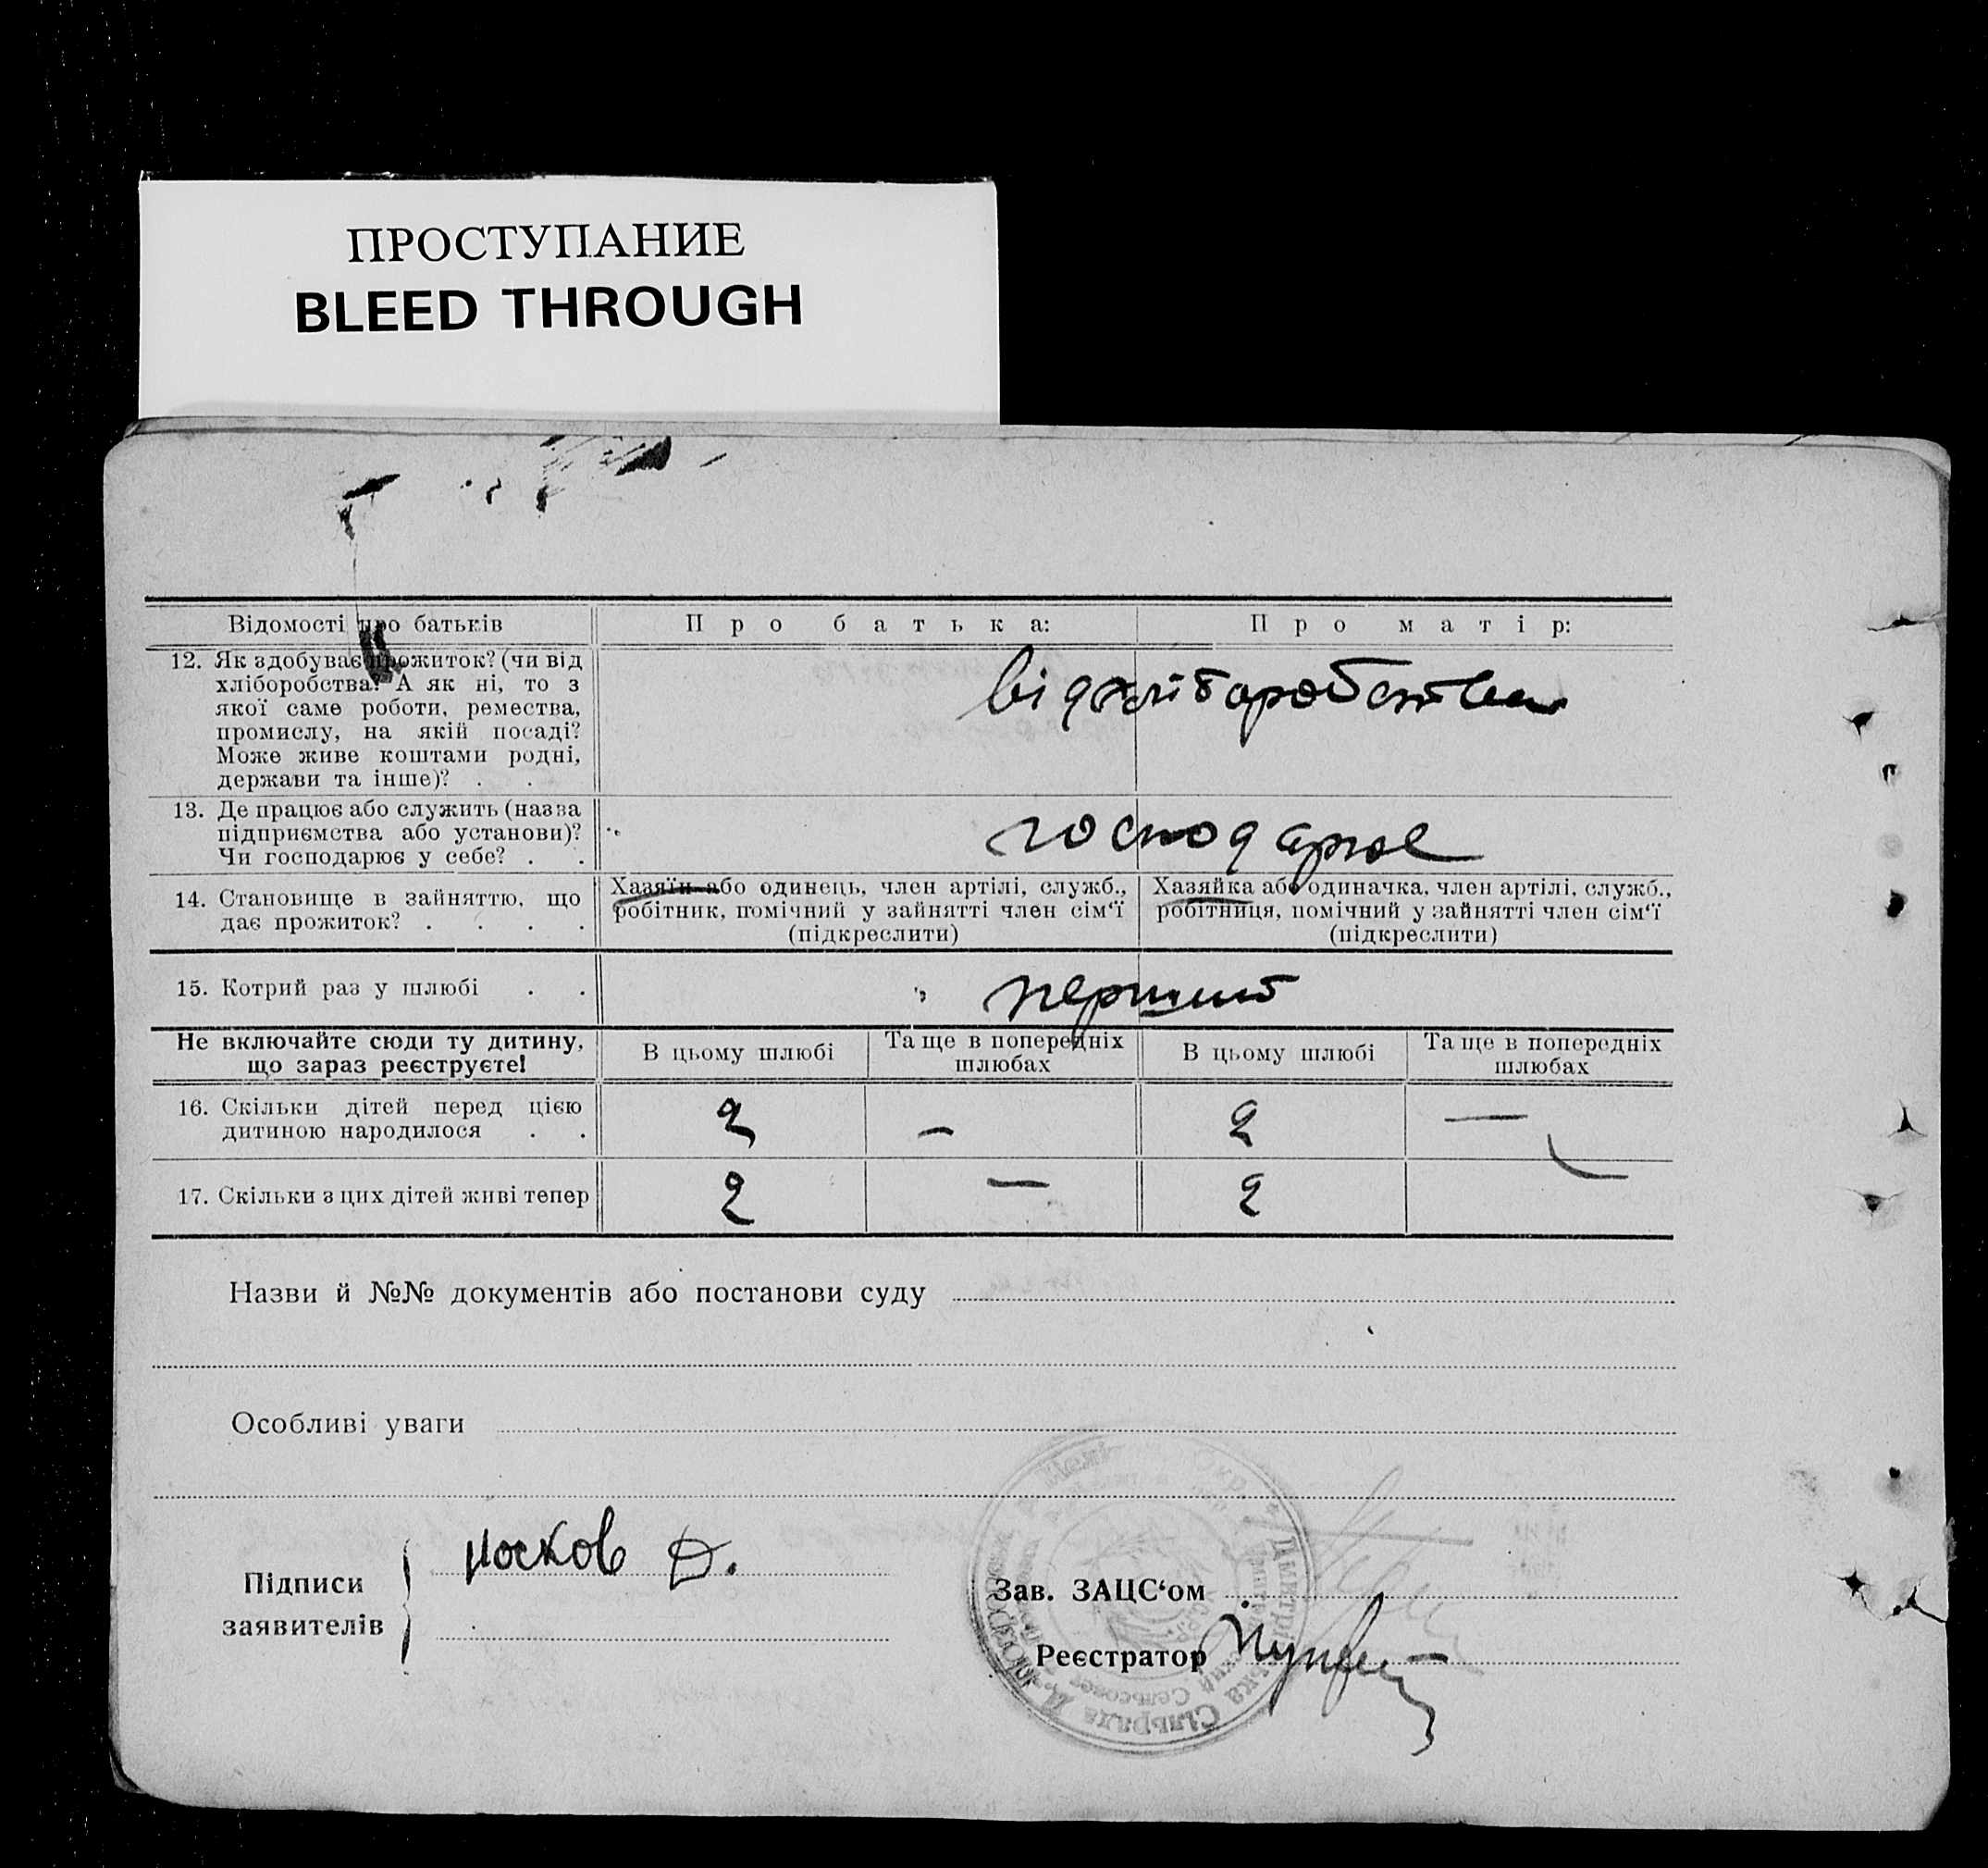 ПРОСТУПАНИЕ
BLEED THROUGH
Відомості про батьків
Про батька:
Про матір:
12. Як здобуває прожиток? (чи від
хліборобства? А як ні, то з
якої саме роботи, ремества,
промислу, на якій посаді?
Може живе коштами родні,
держави та інше)? . .
від хліборобства
13. Де працює або служить (назва
підприємства або установи)?
Чи господарює у себе? . .
господарює
14. Становище в зайняттю, що
дає прожиток? . . . .
Хазяїн або одинець, член артілі, служб.,
робітник, помічний у зайнятті член сім‘ї
(підкреслити)
Хазяйка або одиначка, член артілі, служб.,
робітниця, помічний у зайнятті член сім‘ї
(підкреслити)
15. Котрий раз у шлюбі . .
первий
Не включайте сюди ту дитину,
що зараз реєструєте!
В цьому шлюбі
Та ще в попередніх
шлюбах
В цьому шлюбі
Та ще в попередніх
шлюбах
16. Скільки дітей перед цією
дитиною народилося . .
2 — 2 —
17. Скільки з цих дітей живі тепер
2 — 2
Назви й №№ документів або постанови суду
Особливі уваги
Підписи
заявителів
носков Д.
Зав. ЗАЦС‘ом
Реєстратор
Сільрада